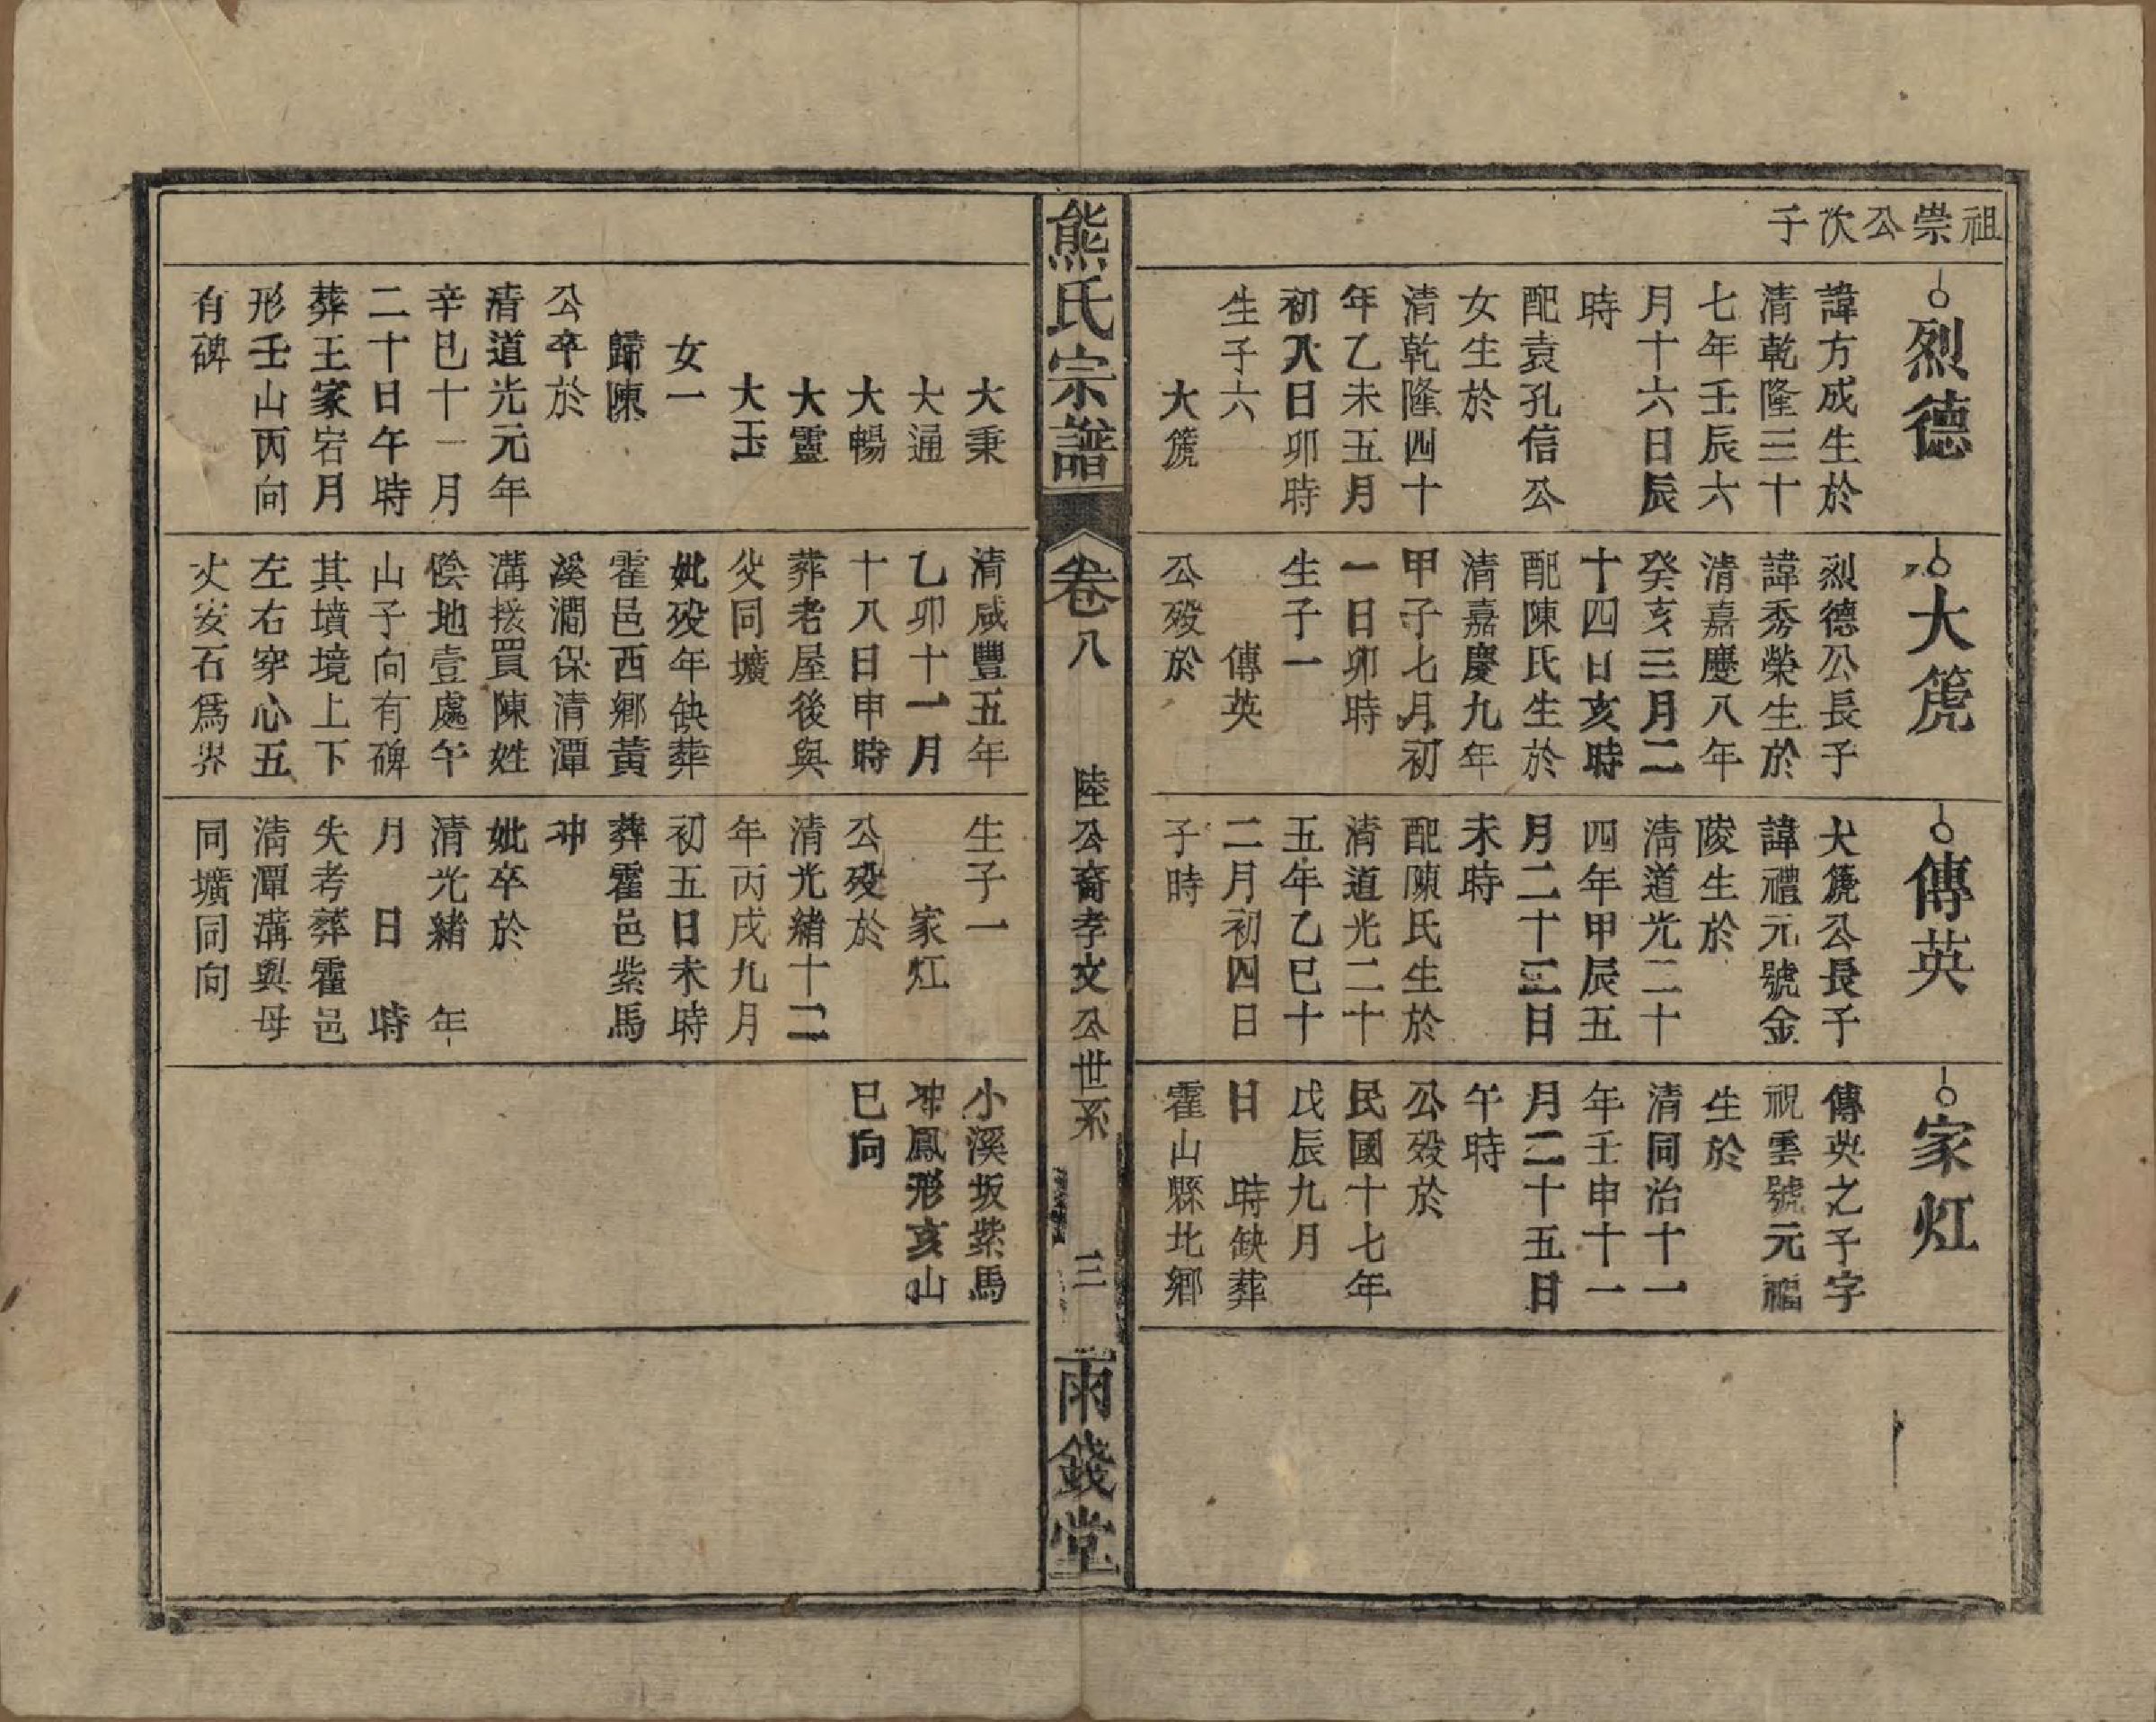 祖崇公次子
烈德
諱方成生於
清乾隆三十
七年壬辰六
月十六日辰
時
配袁孔信公
女生於
清乾隆四十
年乙未五月
初八日卯時
生子六
大箎
大秉
大通
大暢
大靈
大玉
女一
歸陳
公卒於
清道光元年
辛巳十一月
二十日午時
葬王家宕月
形壬山丙向
有碑
大箎
烈德公長子
諱秀榮生於
清嘉慶八年
癸亥三月二
十四日亥時
配陳氏生於
清嘉慶九年
甲子七月初
一日卯時
生子一
傳英
公歿於
清咸豐五年
乙卯十一月
十八日申時
葬老屋後與
父同壙
妣歿年缺葬
霍邑西鄉黃
溪澗保清潭
溝接買陳姓
陰地壹處午
山子向有碑
其墳境上下
左右穿心五
丈安石爲界
傳英
大箎公長子
諱禮元號金
陵生於
清道光二十
四年甲辰五
月二十三日
未時
配陳氏生於
清道光二十
五年乙巳十
二月初四日
子時
生子一
家灴
公歿於
清光緒十二
年丙戌九月
初五日未時
葬霍邑紫馬
冲
妣卒於
清光緒 年
月 日 時
失考葬霍邑
清潭溝與母
同壙同向
家灴
傳英之子字
祝雲號元福
生於
清同治十一
年壬申十一
月二十五日
午時
公歿於
民國十七年
戊辰九月
日 時缺葬
霍山縣北鄉
小溪坂紫馬
冲鳳形亥山
巳向
熊氏宗譜
卷八
陸公裔孝文公世系
三
雨錢堂